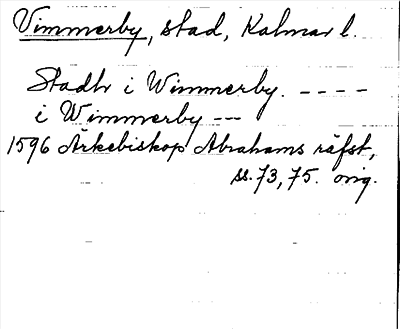 Vimmerby, stad, Kalmar l.
Stadh i Wimmerby. ----
i Wimmerby ---
1596 Ärkebiskop Abrahams räfst,
ss. 73, 75. orig.